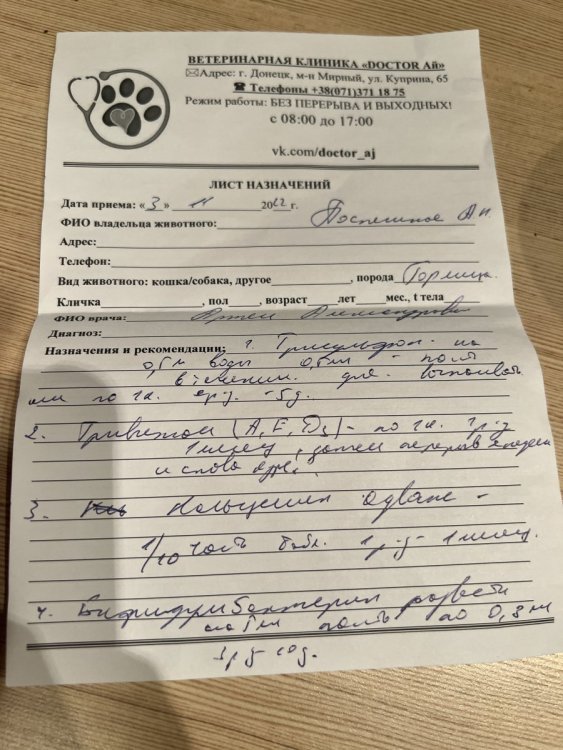 ВЕТЕРИНАРНАЯ КЛИНИКА «DOCTOR Ай»
Адрес: г. Донецк, м-н Мирный, ул. Куприна, 65
Телефоны +38(071)371 18 75
Режим работы: БЕЗ ПЕРЕРЫВА И ВЫХОДНЫХ!
с 08:00 до 17:00
vk.com/doctor_aj
ЛИСТ НАЗНАЧЕНИЙ
Дата приема: «3» 11 2022 г.
ФИО владельца животного:
Адрес:
Телефон:
Вид животного: кошка/собака, другое , порода Горлица
Кличка , пол возраст лет мес., t тела
ФИО врача: Артем
Диагноз:
Назначения и рекомендации: 1. Трисульфон на
0,5 л воды 0,5 мл -
в течении для
по 1 к. - 5 д.
2. Тривитам (А, Е, D3) - по 1 к. 1 р-д
1 месяц, затем перерыв
и снова курс.
3. Кальцемин адванс -
1/10 часть табл. 1 р-д - 1 месяц
4. Бифидумбактерин развести
на 5 мл по 0,3 мл